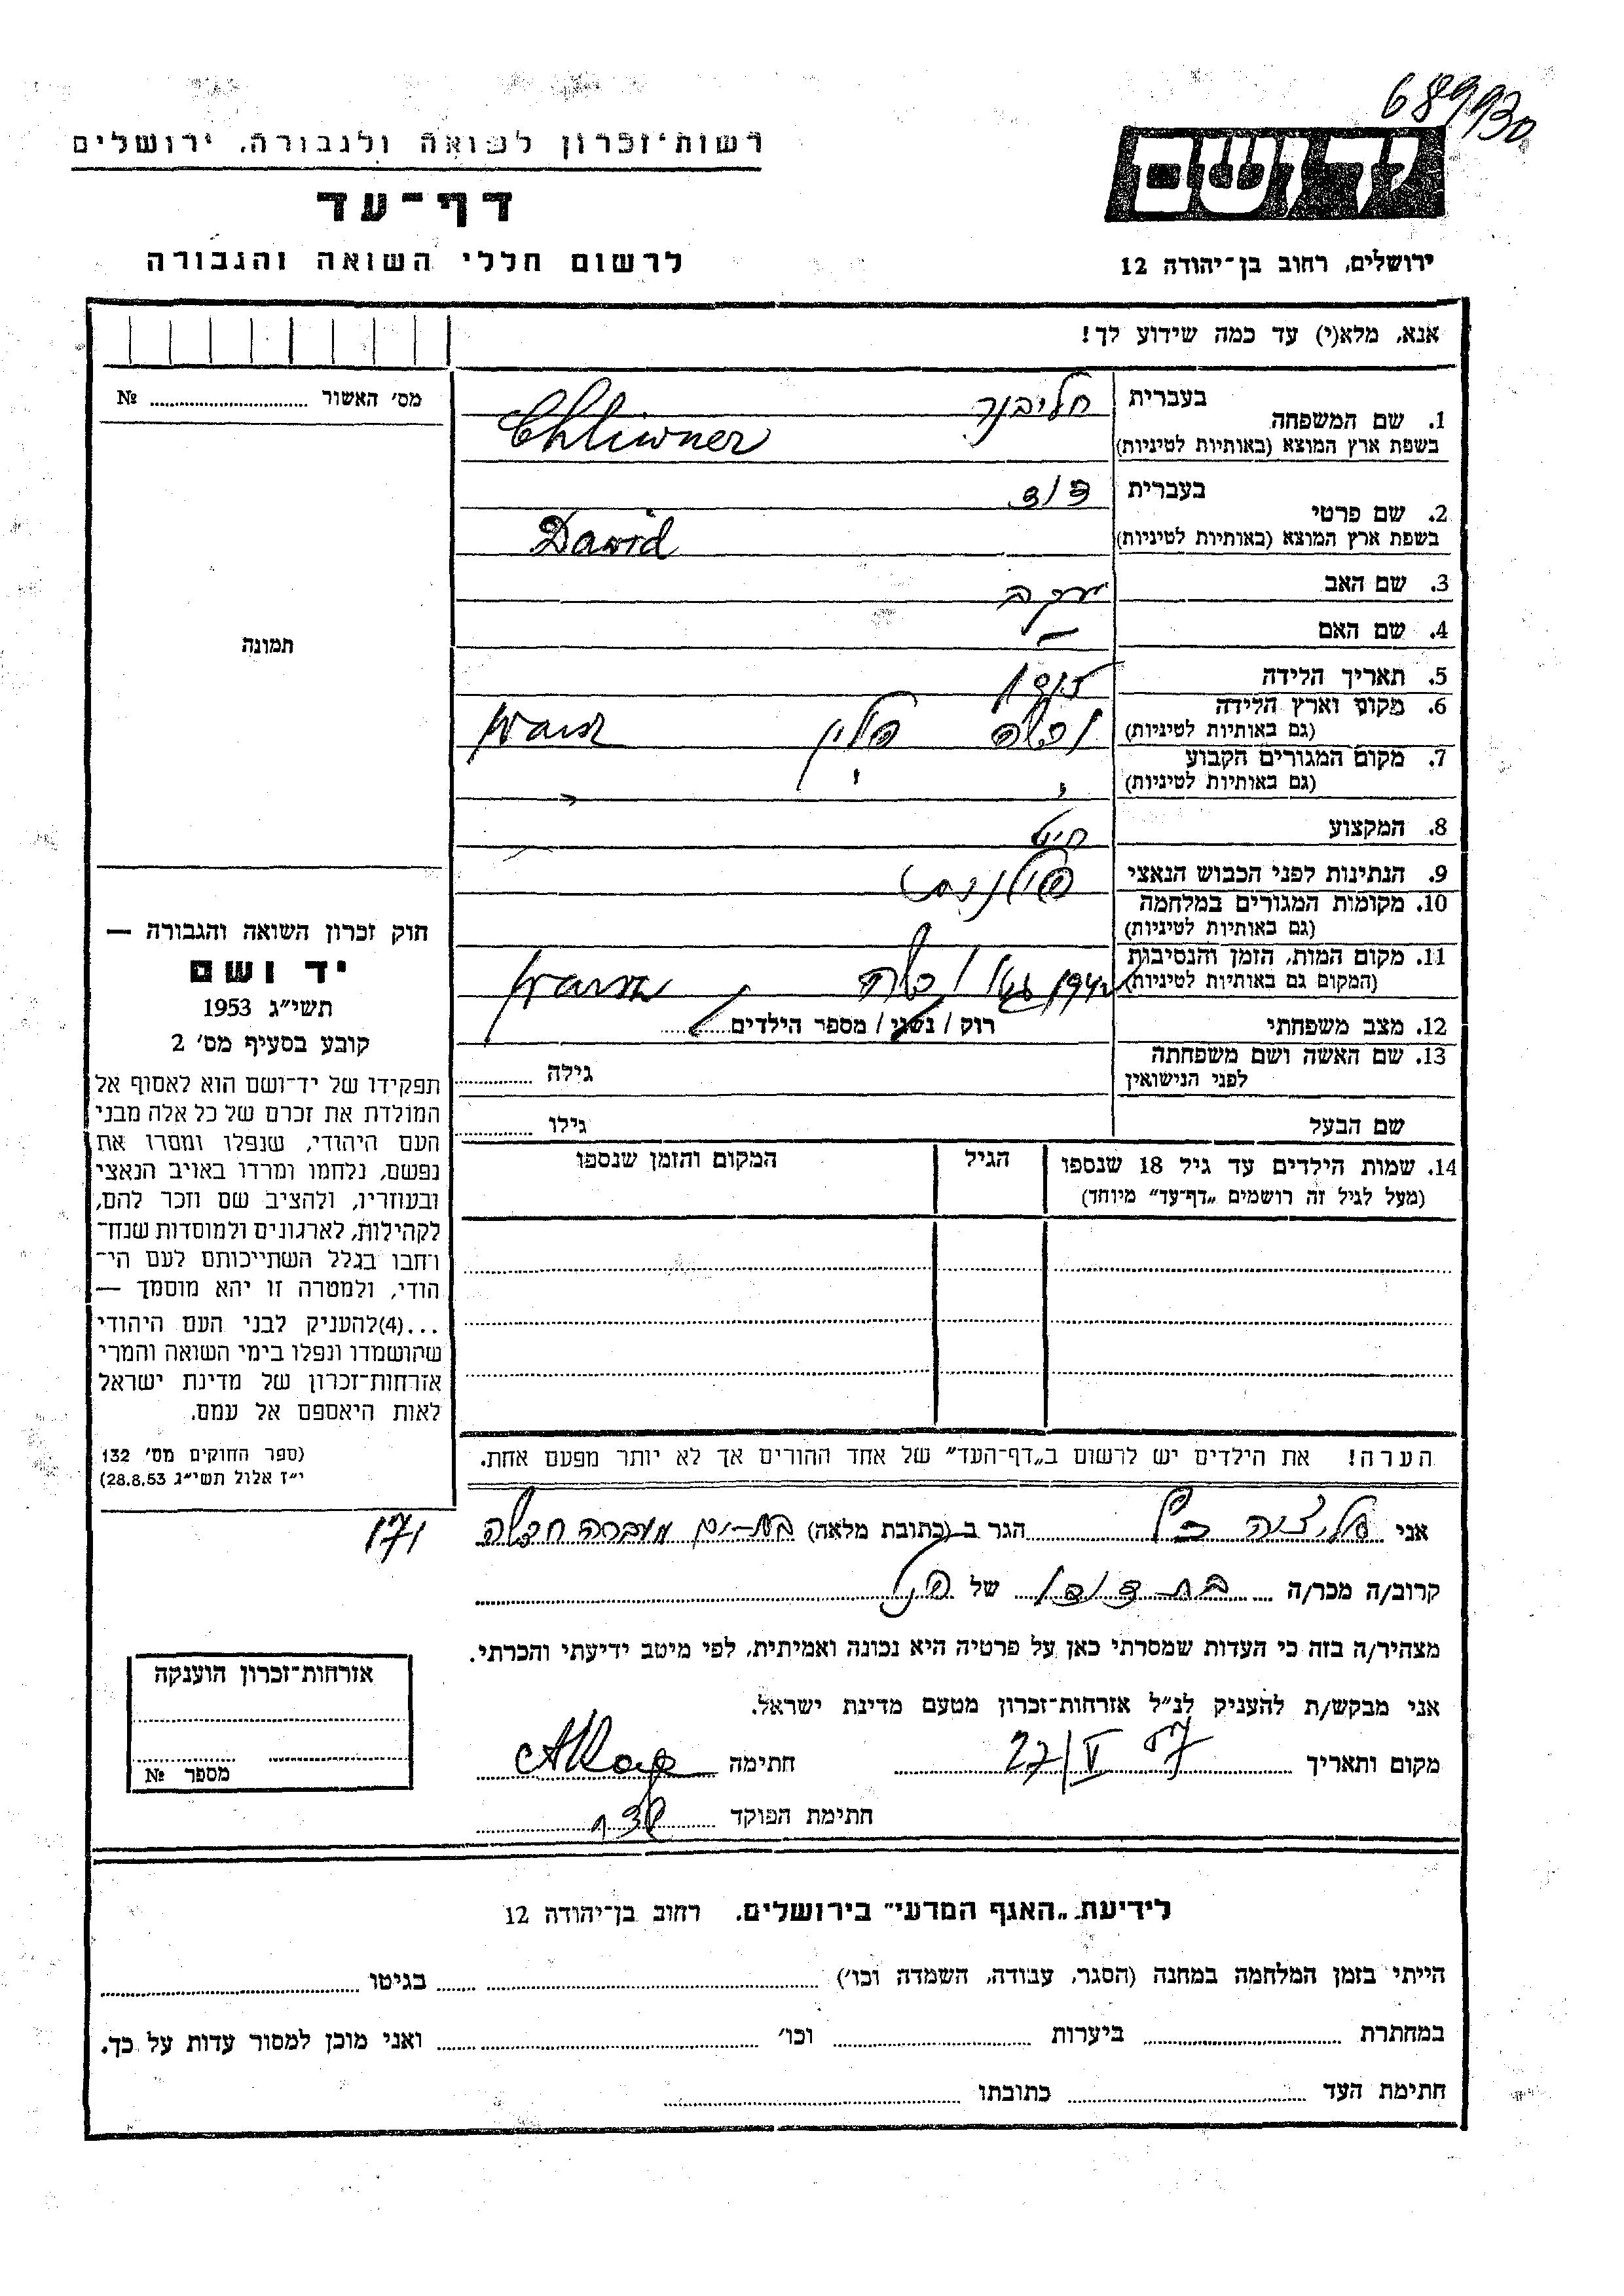 689930
רשות־זכרון לשואה ולגבורה, ירושלים
יד ושם
דף־עד
לרשום חללי השואה והגבורה
ירושלים, רחוב בן־יהודה 12
אנא, מלא(י) עד כמה שידוע לך!
מס' האשור № 
תמונה
1. שם המשפחה בעברית חליבנר
בשפת ארץ המוצא (באותיות לטיניות) Chliwner
2. שם פרטי בעברית דוד
בשפת ארץ המוצא (באותיות לטיניות) Dawid
3. שם האב יעקב
4. שם האם —
5. תאריך הלידה
6. מקום וארץ הלידה (גם באותיות לטיניות) ורשה פולין
7. מקום המגורים הקבוע (גם באותיות לטיניות) " " "
8. המקצוע חייט
9. הנתינות לפני הכבוש הנאצי פולנית
10. מקומות המגורים במלחמה (גם באותיות לטיניות)
11. מקום המות, הזמן והנסיבות (המקום גם באותיות לטיניות) גטו ורשה
12. מצב משפחתי רוק / נשוי / מספר הילדים
13. שם האשה ושם משפחתה לפני הנישואין גילה
שם הבעל גילו
14. שמות הילדים עד גיל 18 שנספו הגיל המקום והזמן שנספו
(מעל לגיל זה רושמים „דף־עד” מיוחד)
הערה! את הילדים יש לרשום ב„דף־העד” של אחד ההורים אך לא יותר מפעם אחת.
חוק זכרון השואה והגבורה —
יד ושם
תשי״ג 1953
קובע בסעיף מס' 2
תפקידו של יד־ושם הוא לאסוף אל
המולדת את זכרם של כל אלה מבני
העם היהודי, שנפלו ומסרו את
נפשם, נלחמו ומרדו באויב הנאצי
ובעוזריו, ולהציב שם וזכר להם,
לקהילות, לארגונים ולמוסדות שנח־
רבו בגלל השתייכותם לעם הי־
הודי, ולמטרה זו יהא מוסמך —
...(4)להעניק לבני העם היהודי
שהושמדו ונפלו בימי השואה והמרי
אזרחות־זכרון של מדינת ישראל
לאות היאספם אל עמם.
(ספר החוקים מס' 132
י״ז אלול תשי״ג 28.8.53)
אני הגר ב (כתובת מלאה) בת-ים מעברה
קרוב/ה מכר/ה בת דודו של הנ״ל
מצהיר/ה בזה כי העדות שמסרתי כאן על פרטיה היא נכונה ואמיתית, לפי מיטב ידיעתי והכרתי.
אני מבקש/ת להעניק לנ״ל אזרחות־זכרון מטעם מדינת ישראל.
מקום ותאריך 27/V 57 חתימה
חתימת הפוקד
אזרחות־זכרון הוענקה
מספר №
לידיעת „האגף המדעי” בירושלים, רחוב בן־יהודה 12
הייתי בזמן המלחמה במחנה (הסגר, עבודה, השמדה וכו') בגיטו
במחתרת ביערות וכו' ואני מוכן למסור עדות על כך.
חתימת העד כתובתו